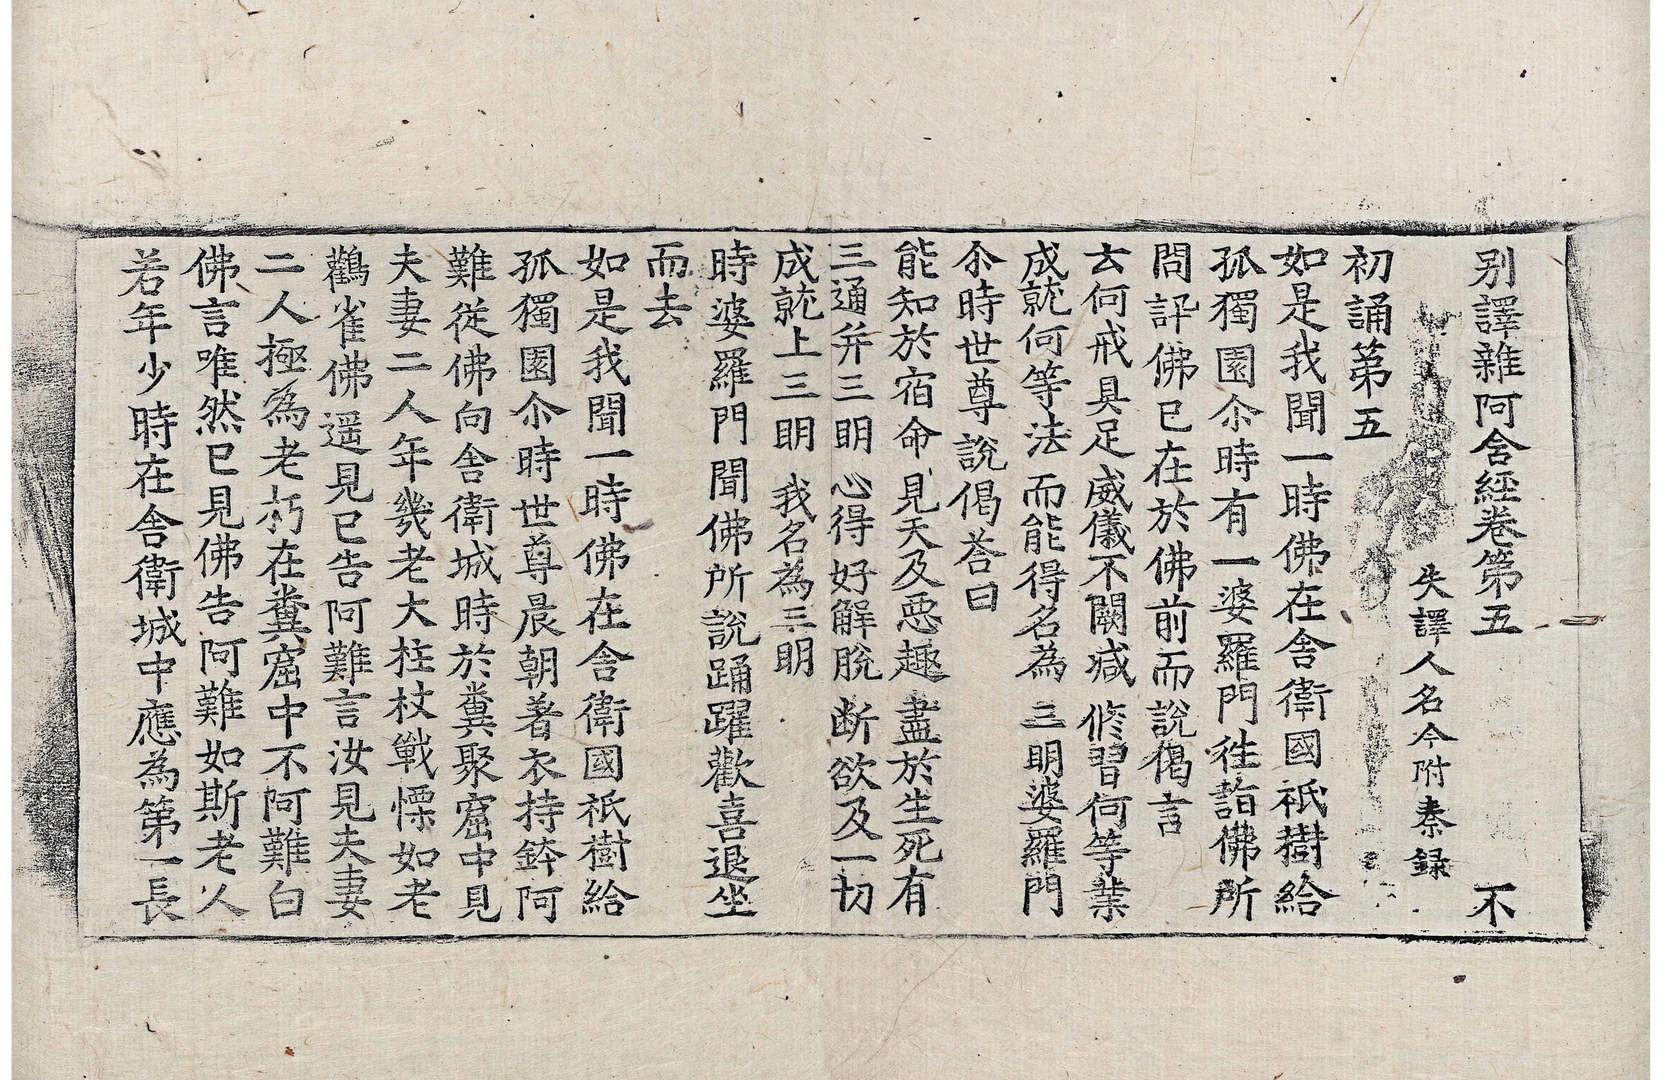 别譯雜阿舍經卷第五 不
失譯人名今附秦録
初誦第五
如是我聞一時佛在舍衛國祇樹給
孤獨園尒時有一婆羅門往詣佛所
問訊佛已在於佛前而說偈言
云何戒具足 威儀不闕減 修習何等業
成就何等法 而能得名為 三明婆羅門
尒時世尊說偈荅曰
能知於宿命 見天及惡趣 盡於生死有
三通并三明 心得好解脫 断欲及一切
成就上三明 我名為三明
時婆羅門聞佛所說踊躍歡喜退坐
而去
如是我聞一時佛在舍衛國祇樹給
孤獨園尒時世尊晨朝著衣持鉢阿
難從佛向舍衛城時於糞聚窟中見
夫妻二人年幾老大柱杖戰慄如老
鸛雀佛遥見已告阿難言汝見夫妻
二人極為老朽在糞窟中不阿難白
佛言唯然已見佛告阿難如斯老人
若年少時在舍衛城中應為第一長